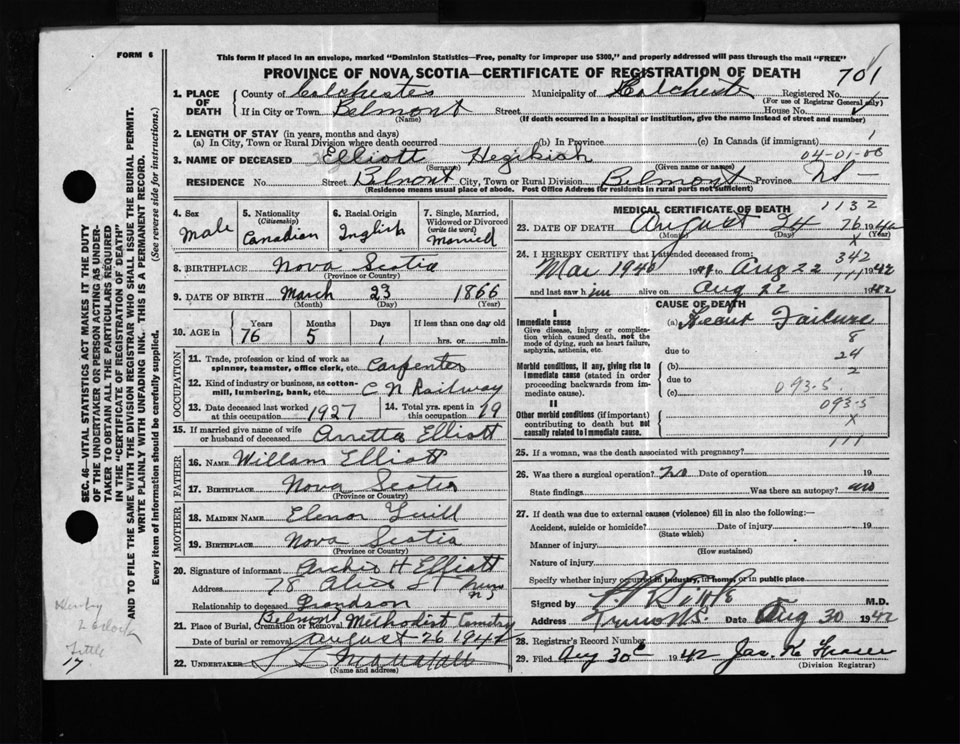 FORM 6
This form if placed in an envelope, marked "Dominion Statistics—Free, penalty for improper use $300," and properly addressed will pass through the mail "FREE"
PROVINCE OF NOVA SCOTIA—CERTIFICATE OF REGISTRATION OF DEATH
701
1. PLACE OF DEATH
County of Colchester Municipality of Colchester Registered No.
(For use of Registrar General only)
If in City or Town Belmont Street House No.
(Name) (If death occurred in a hospital or institution, give the name instead of street and number)
2. LENGTH OF STAY (in years, months and days)
(a) In City, Town or Rural Division where death occurred (b) In Province (c) In Canada (if immigrant)
1
04-01-00
3. NAME OF DECEASED Elliott Hezikiah
(Surname) (Given name or names)
RESIDENCE No. Street Belmont City, Town or Rural Division Belmont Province NS-
(Residence means usual place of abode. Post Office Address for residents in rural parts not sufficient)
4. Sex Male
5. Nationality (Citizenship) Canadian
6. Racial Origin Inglish
7. Single, Married, Widowed or Divorced (write the word) Married
8. BIRTHPLACE Nova Scotia
(Province or Country)
9. DATE OF BIRTH March 23 1866
(Month) (Day) (Year)
10. AGE in Years Months Days If less than one day old
76 5 1 hrs. or min.
OCCUPATION
11. Trade, profession or kind of work as spinner, teamster, office clerk, etc. Carpenter
12. Kind of industry or business, as cotton-mill, lumbering, bank, etc. C N Railway
13. Date deceased last worked at this occupation 1927
14. Total yrs. spent in this occupation 19
15. If married give name of wife or husband of deceased Arretta Elliott
FATHER
16. Name William Elliott
17. Birthplace Nova Scotia
(Province or Country)
MOTHER
18. Maiden Name Elenor Yuill
19. Birthplace Nova Scotia
(Province or Country)
20. Signature of informant Archie H Elliott
Address 78 Alice St Truro NS
Relationship to deceased Grandson
21. Place of Burial, Cremation or Removal Belmont Methodist Cemetry
Date of burial or removal August 26 1942
22. UNDERTAKER
(Name and address)
MEDICAL CERTIFICATE OF DEATH 1132
23. DATE OF DEATH August 24 76 1942
(Month) (Day) (Year)
24. I HEREBY CERTIFY that I attended deceased from: 342
Mar 1940 to Aug 22 1942
111
and last saw him alive on Aug 22 1942
CAUSE OF DEATH
I
Immediate cause
Give disease, injury or complication which caused death, not the mode of dying, such as heart failure, asphyxia, asthenia, etc.
(a) Heart Failure
8
due to 24
Morbid conditions, if any, giving rise to immediate cause (stated in order proceeding backwards from immediate cause).
2
(b)
due to
(c) 093.5
II
093.5
Other morbid conditions (if important) contributing to death but not causally related to immediate cause.
111
25. If a woman, was the death associated with pregnancy?
26. Was there a surgical operation? no Date of operation 19
State findings Was there an autopsy? no
27. If death was due to external causes (violence) fill in also the following:—
Accident, suicide or homicide? Date of injury 19
(State which)
Manner of injury
(How sustained)
Nature of injury
Specify whether injury occurred in industry, in home, or in public place
Signed by M.D.
Address Truro N.S. Date Aug 30 1942
28. Registrar's Record Number
29. Filed Aug 30 1942 Jas. K Fraser
(Division Registrar)
SEC. 46—VITAL STATISTICS ACT MAKES IT THE DUTY
OF THE UNDERTAKER OR PERSON ACTING AS UNDER-
TAKER TO OBTAIN ALL THE PARTICULARS REQUIRED
IN THE "CERTIFICATE OF REGISTRATION OF DEATH"
AND TO FILE THE SAME WITH THE DIVISION REGISTRAR WHO SHALL ISSUE THE BURIAL PERMIT.
WRITE PLAINLY WITH UNFADING INK. THIS IS A PERMANENT RECORD.
Every item of information should be carefully supplied. (See reverse side for instructions.)
Little
17